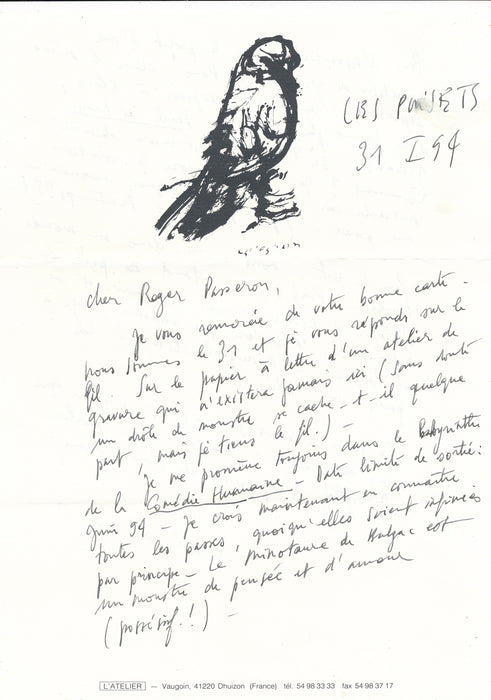 LES PUISETS
31 I 94
cher Roger Passeron,
Je vous remercie de votre bonne carte -
nous sommes le 31 et je vous réponds sur le
fil. Sur le papier à lettre d'un atelier de
gravure qui n'existera jamais ici (sans doute
un drôle de monstre se cache-t-il quelque
part, mais je tiens le fil.) -
Je me promène toujours dans le labyrinthe
de la Comédie Humaine - Date limite de sortie :
Juin 94 - Je crois maintenant en connaître
toutes les passes, quoiqu'elles soient infinies
par principe - Le minotaure de Balzac est
un monstre de pensée et d'amour
(possessif !) -
L'ATELIER — Vaugoin, 41220 Dhuizon (France) tél. 54 98 33 33 fax 54 98 37 17